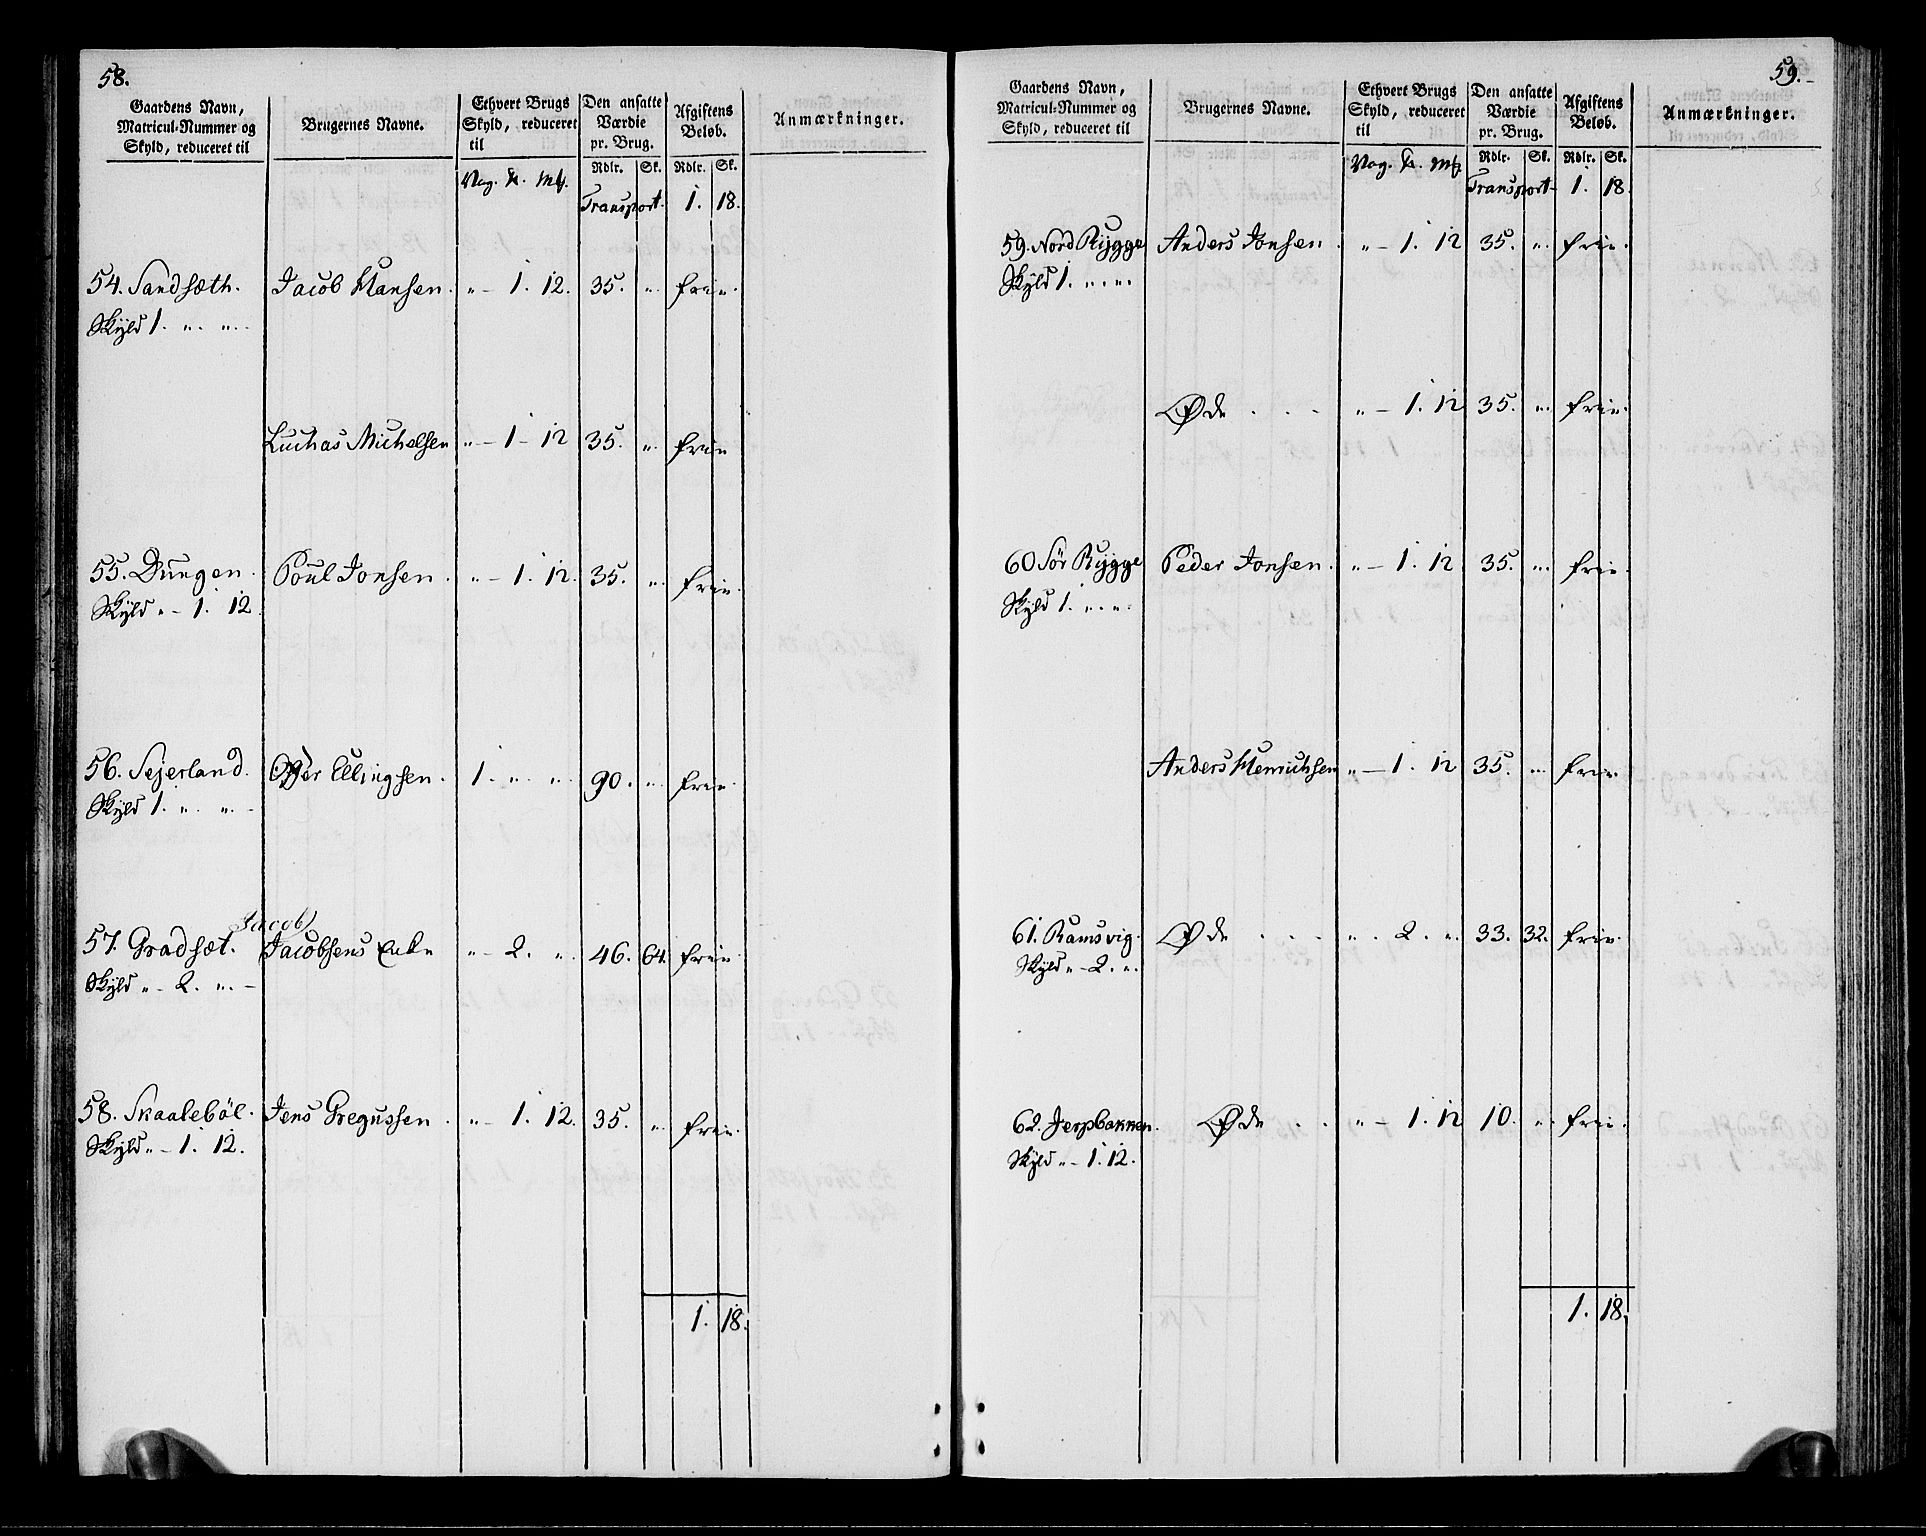 58.
Gaardens Navn, Matricul-Nummer og Skyld, reduceret til | Brugernes Navne. | Ethvert Brugs Skyld, reduceret til | Den ansatte Værdie pr. Brug. | Afgiftens Beløb. | Anmærkninger.
Rdlr. Sk. Rdlr. Sk.
Vog. Mk.
Transport 1. 18.
54. Sandsæth. Jacob Hansen. „ - 1. 12. 35. „ frie.
Skyld 1. „. „.
Luchas Michelsen „ - 1 - 12 35. „ frie
55. Dungen. Poul Jonsen. „ - 1. 12. 35. „ frie.
Skyld „ - 1. 12.
56. Sejerland. Ellingsen. 1. „. „. 90. „ frie.
Skyld 1. „. „. -
Jacob
57. Gradsæt. Jacobsens Enke „ - 2. „. 46. 64. frie.
Skyld „ - 2. „. -
58. Skaalebøl. Jens Gregussen. „ - 1. 12. 35. „ frie.
Skyld „ - 1. 12.
1. 18.
59.
Gaardens Navn, Matricul-Nummer og Skyld, reduceret til | Brugernes Navne. | Ethvert Brugs Skyld, reduceret til | Den ansatte Værdie pr. Brug. | Afgiftens Beløb. | Anmærkninger.
Rdlr. Sk. Rdlr. Sk.
Vog. Mk.
Transport 1. 18.
59. Nord Rÿgge Anders Jonsen. „ - 1. 12 35. „ frie.
Skyld 1. „. „.
Øde . . . „ - 1. 12 35. „ frie.
60 Sør Rÿgge Peder Jonsen. „ - 1. 12 35. „ frie.
Skyld 1. „. „.
Anders Henrichsen „ - 1. 12 35. „ frie.
61. Ramsvig. Øde . . . „. 2. „. 33. 32. frie.
Skyld „ - 2. „.
62. Jerpbakken. Øde . . „ - 1. 12 10. „ frie.
Skyld „ - 1. 12.
1. 18.